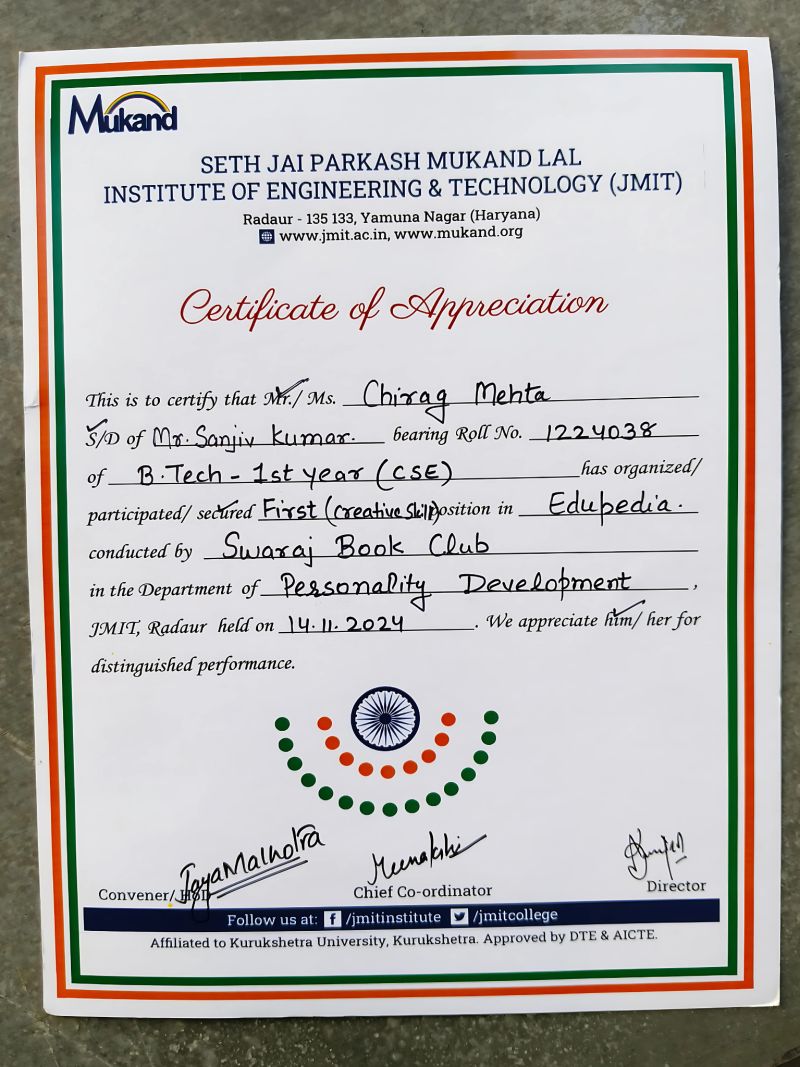 Mukand
SETH JAI PARKASH MUKAND LAL
INSTITUTE OF ENGINEERING & TECHNOLOGY (JMIT)
Radaur - 135 133, Yamuna Nagar (Haryana)
www.jmit.ac.in, www.mukand.org
Certificate of Appreciation
This is to certify that Mr./ Ms. Chirag Mehta
S/D of Mr. Sanjiv Kumar. bearing Roll No. 1224038
of B.Tech - 1st year (CSE) has organized/
participated/ secured First (Creative Skill) position in Edupedia.
conducted by Swaraj Book Club
in the Department of Personality Development,
JMIT, Radaur held on 14.11.2024. We appreciate him/ her for
distinguished performance.
Jaya Malhotra
Meenakshi
Convener/ HoD
Chief Co-ordinator
Director
Follow us at: f /jmitinstitute /jmitcollege
Affiliated to Kurukshetra University, Kurukshetra. Approved by DTE & AICTE.